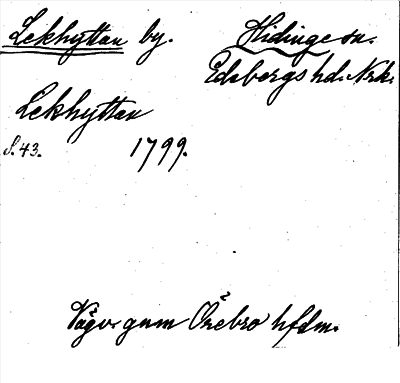 Lekhyttan by. Hidinge sn.
Edsbergs hd. Nrk.
Lekhyttan
S. 43. 1799.
Vägar gnm Örebro hfdm.